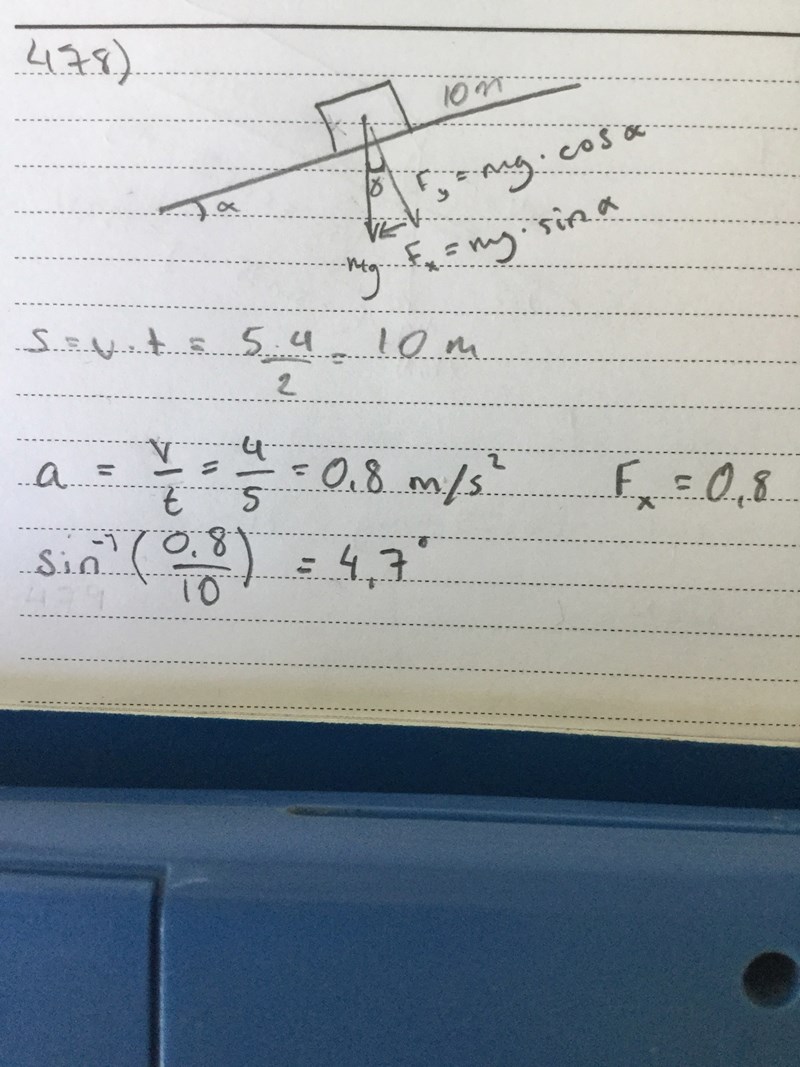 478)
10m
α
γ
F_y = mg · cos α
mg
F_x = mg · sin α
s = v · t = \frac{5 · 4}{2} = 10 m
a = \frac{v}{t} = \frac{4}{5} = 0,8 m/s² F_x = 0,8
sin⁻¹ (\frac{0,8}{10}) = 4,7°